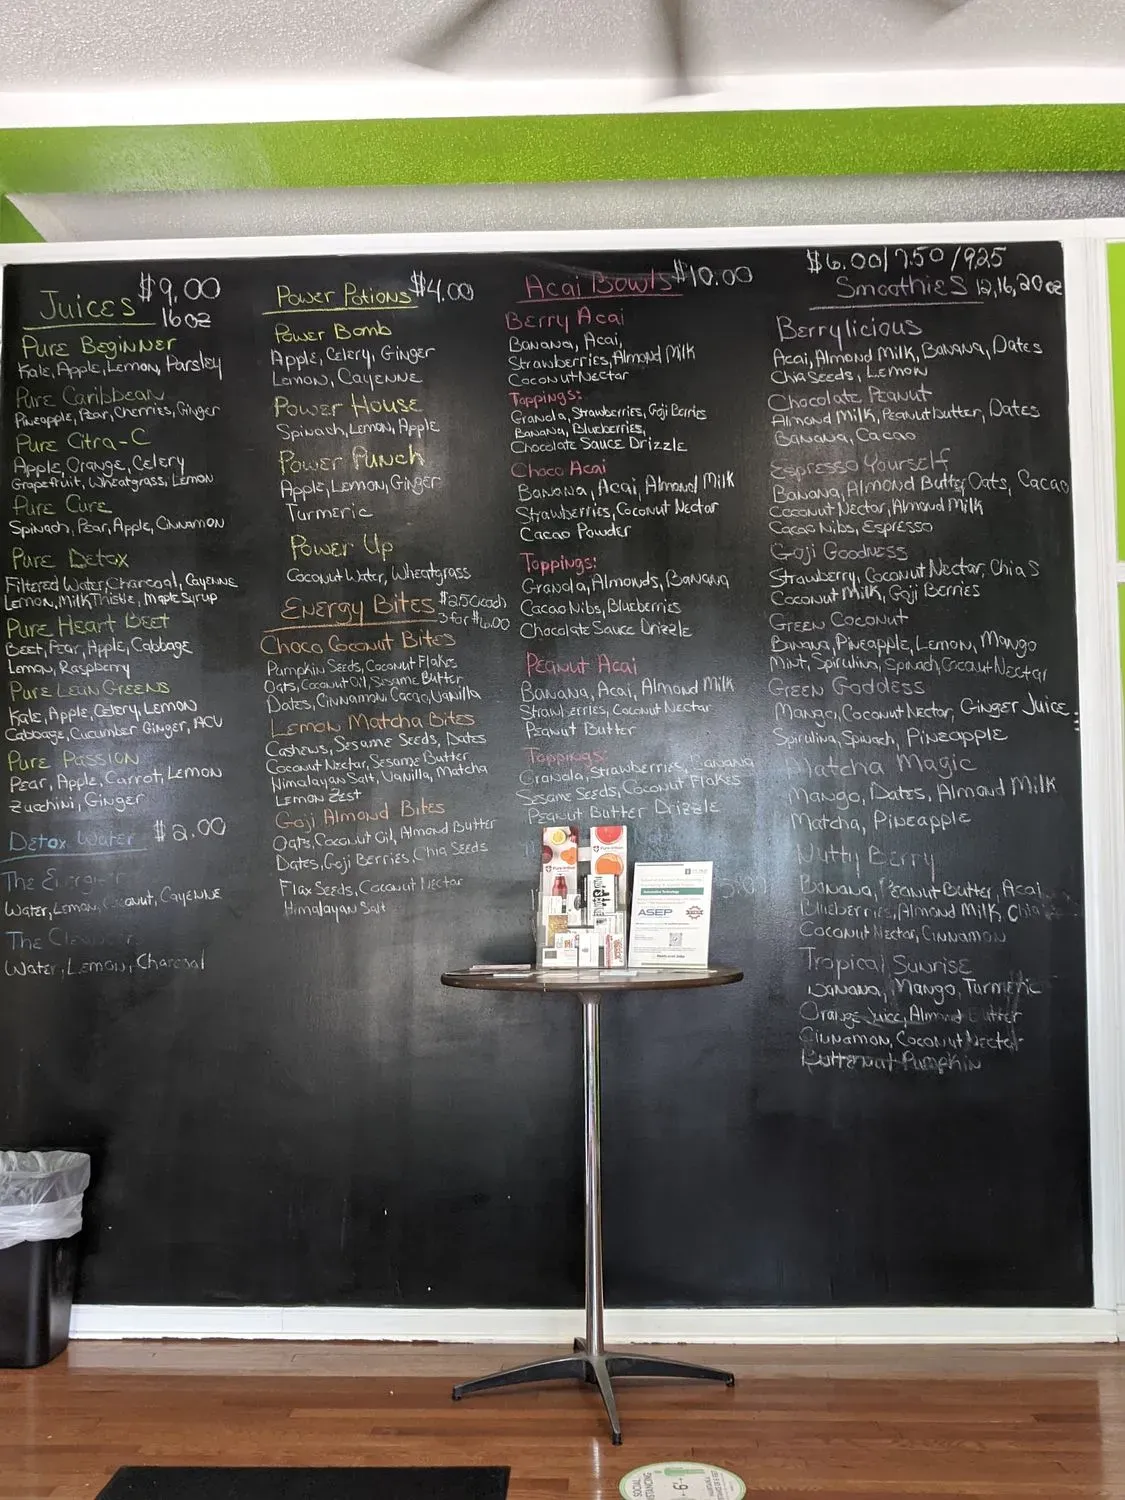 Juices $9.00
16oz
Pure Beginner
Kale, Apple, Lemon, Parsley
Pure Caribbean
Pineapple, Pear, Cherries, Ginger
Pure Citra-C
Apple, Orange, Celery
Grapefruit, Wheatgrass, Lemon
Pure Cure
Spinach, Pear, Apple, Cinnamon
Pure Detox
Filtered Water, Charcoal, Cayenne
Lemon, Milk Thistle, Maple Syrup
Pure Heart Beet
Beet, Pear, Apple, Cabbage
Lemon, Raspberry
Pure Lean Greens
Kale, Apple, Celery, Lemon
Cabbage, Cucumber Ginger, ACV
Pure Passion
Pear, Apple, Carrot, Lemon
Zucchini, Ginger
Detox Water $2.00
The
Water, Lemon, Cayenne
The
Water, Lemon, Charcoal
Power Potions $4.00
Power Bomb
Apple, Celery, Ginger
Lemon, Cayenne
Power House
Spinach, Lemon, Apple
Power Punch
Apple, Lemon, Ginger
Turmeric
Power Up
Coconut Water, Wheatgrass
Energy Bites $2.50 each
3 for $6.00
Choco Coconut Bites
Pumpkin Seeds, Coconut Flakes
Oats, Coconut Oil, Sesame Butter
Dates, Cinnamon Cacao, Vanilla
Lemon Matcha Bites
Cashews, Sesame Seeds, Dates
Coconut Nectar, Sesame Butter
Himalayan Salt, Vanilla, Matcha
Lemon Zest
Goji Almond Bites
Oats, Coconut Oil, Almond Butter
Dates, Goji Berries, Chia Seeds
Flax Seeds, Coconut Nectar
Himalayan Salt
Acai Bowls $10.00
Berry Acai
Banana, Acai,
Strawberries, Almond Milk
Coconut Nectar
Toppings:
Granola, Strawberries, Goji Berries
Banana, Blueberries,
Chocolate Sauce Drizzle
Choco Acai
Banana, Acai, Almond Milk
Strawberries, Coconut Nectar
Cacao Powder
Toppings:
Granola, Almonds, Banana
Cacao Nibs, Blueberries
Chocolate Sauce Drizzle
Peanut Acai
Banana, Acai, Almond Milk
Strawberries, Coconut Nectar
Peanut Butter
Toppings:
Granola, Strawberries, Banana
Sesame Seeds, Coconut Flakes
Peanut Butter Drizzle
$6.00/7.50/925
Smoothies 12,16,20oz
Berrylicious
Acai, Almond Milk, Banana, Dates
Chia Seeds, Lemon
Chocolate Peanut
Almond Milk, Peanut butter, Dates
Banana, Cacao
Espresso Yourself
Banana, Almond Butter, Oats, Cacao
Coconut Nectar, Almond Milk
Cacao Nibs, Espresso
Goji Goodness
Strawberry, Coconut Nectar, Chia S
Coconut Milk, Goji Berries
Green Coconut
Banana, Pineapple, Lemon, Mango
Mint, Spirulina, Spinach, Coconut Nectar
Green Goddess
Mango, Coconut Nectar, Ginger Juice
Spirulina, Spinach, Pineapple
Matcha Magic
Mango, Dates, Almond Milk
Matcha, Pineapple
Nutty Berry
Banana, Peanut Butter, Acai
Blueberries, Almond Milk, Chia
Coconut Nectar, Cinnamon
Tropical Sunrise
Banana, Mango, Turmeric
Orange Juice, Almond Butter
Cinnamon, Coconut Nectar
Butternut Pumpkin
ASEP
SOCIAL
DISTANCING
6'